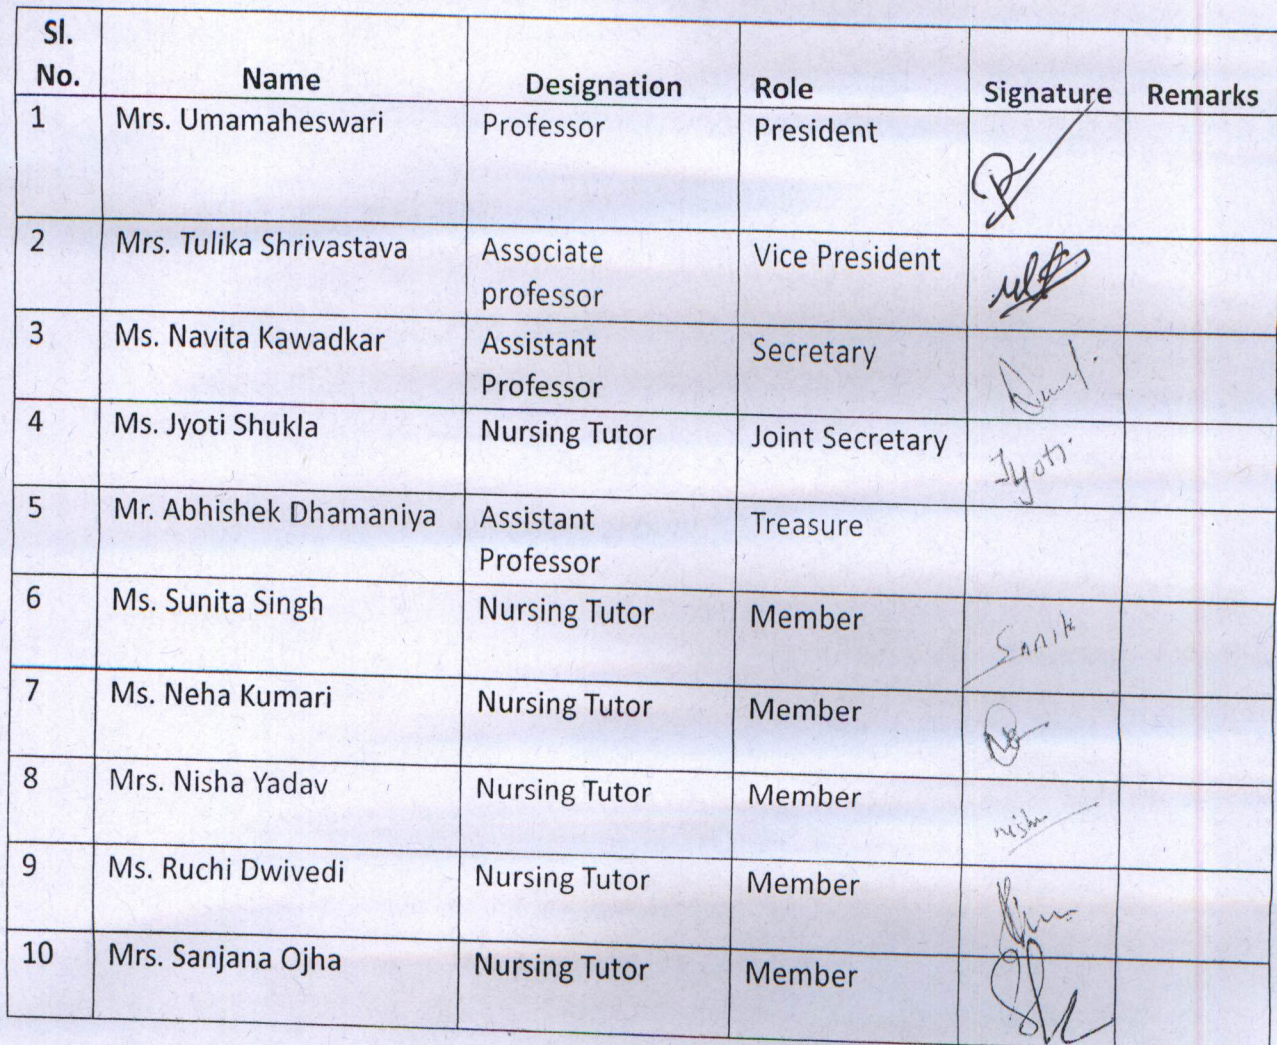 Sl.
No. Name Designation Role Signature Remarks
1 Mrs. Umamaheswari Professor President
2 Mrs. Tulika Shrivastava Associate Vice President
professor
3 Ms. Navita Kawadkar Assistant Secretary
Professor
4 Ms. Jyoti Shukla Nursing Tutor Joint Secretary Jyoti
5 Mr. Abhishek Dhamaniya Assistant Treasure
Professor
6 Ms. Sunita Singh Nursing Tutor Member
7 Ms. Neha Kumari Nursing Tutor Member
8 Mrs. Nisha Yadav Nursing Tutor Member
9 Ms. Ruchi Dwivedi Nursing Tutor Member
10 Mrs. Sanjana Ojha Nursing Tutor Member